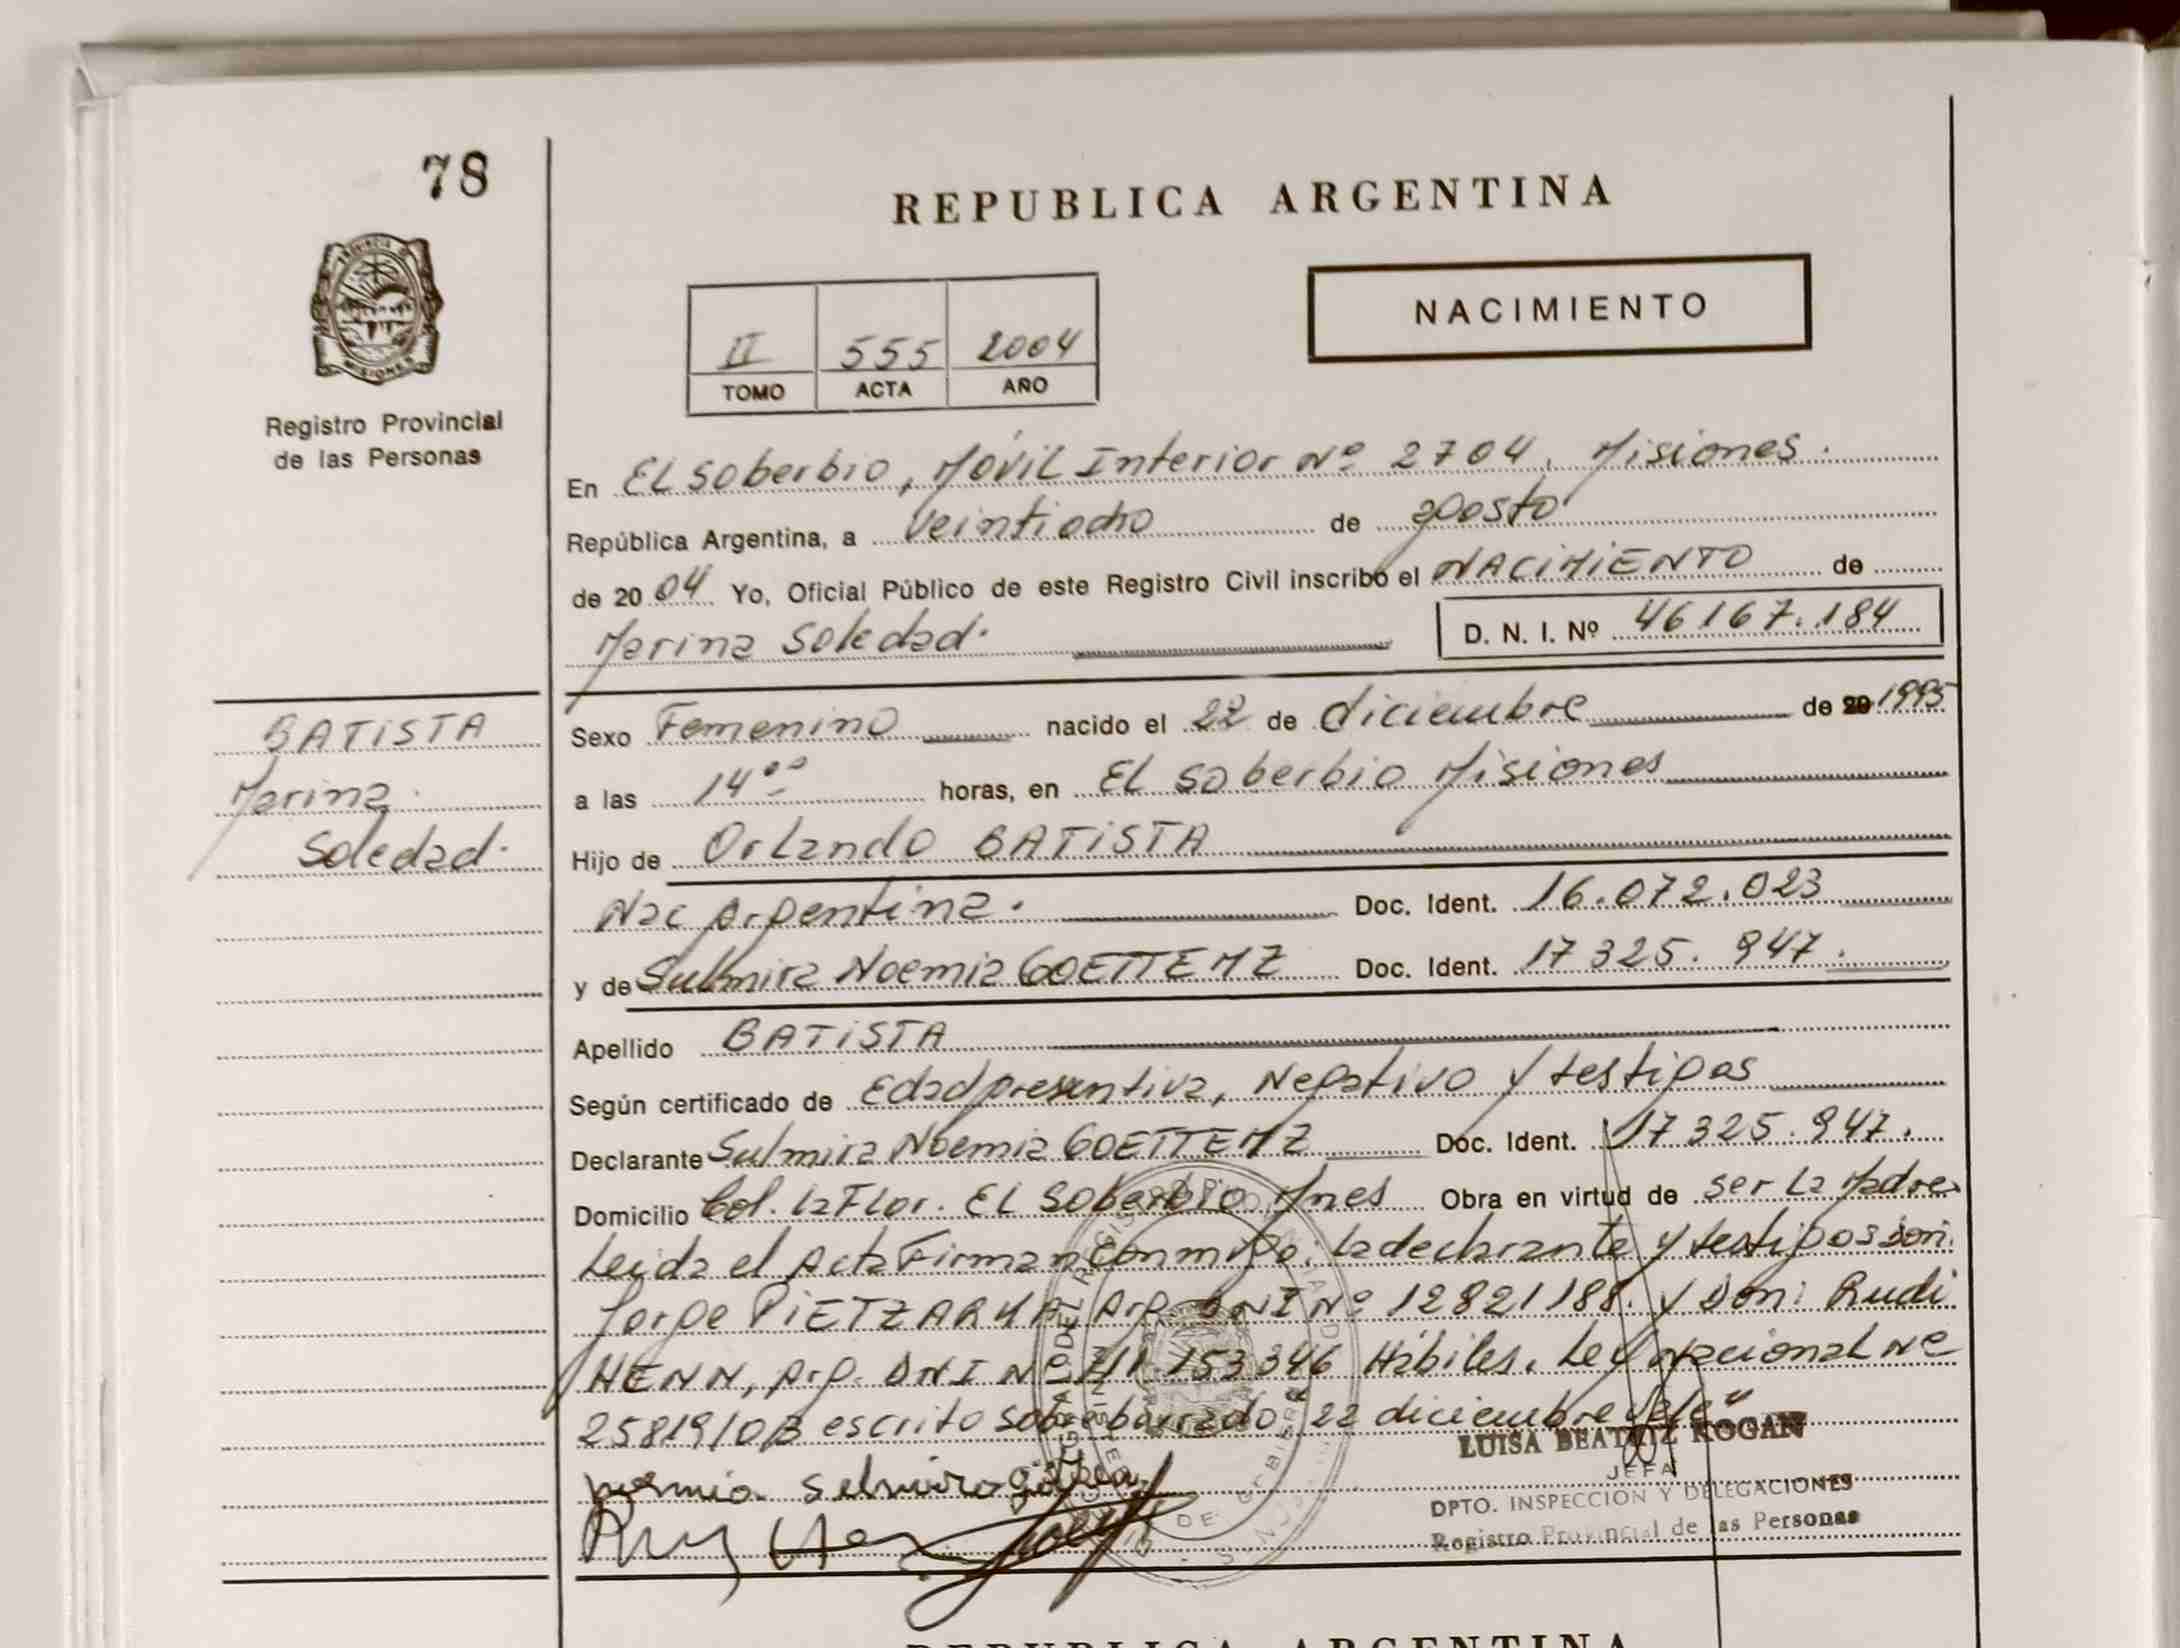 78
REPUBLICA ARGENTINA
NACIMIENTO
II 555 2004
TOMO ACTA AÑO
Registro Provincial
de las Personas
En El Soberbio, Móvil Interior Nº 2704, Misiones.
República Argentina, a veintiocho de agosto
de 2004 Yo, Oficial Público de este Registro Civil inscribo el NACIMIENTO de
Marina Soledad. D. N. I. Nº 46167.184
BATISTA
Marina
Soledad.
Sexo Femenino nacido el 22 de diciembre de 20 1995
a las 14ºº horas, en El Soberbio Misiones
Hijo de Orlando BATISTA
Nac Argentina. Doc. Ident. 16.072.023
y de Sulmira Noemia GOETTEMZ Doc. Ident. 17 325. 947.
Apellido BATISTA
Según certificado de Edad presuntiva, Negativo y testigos
Declarante Sulmira Noemia GOETTEMZ Doc. Ident. 17 325. 947.
Domicilio Col. La Flor. El Soberbio Mnes Obra en virtud de ser la Madre.
Leida el Acta Firman conmigo: la declarante y testigos son:
Jorge Arg. DNI Nº 12821188. y Don: Rudi
HENN, Arg. DNI Nº 11.153346 Hábiles. Ley Nacional Nº
25819/03 escrito sobre borrado, 22 diciembre Vale"
LUISA BEATRIZ KOGAN
JEFA
DPTO. INSPECCION Y DELEGACIONES
Registro Provincial de las Personas
REPUBLICA ARGENTINA